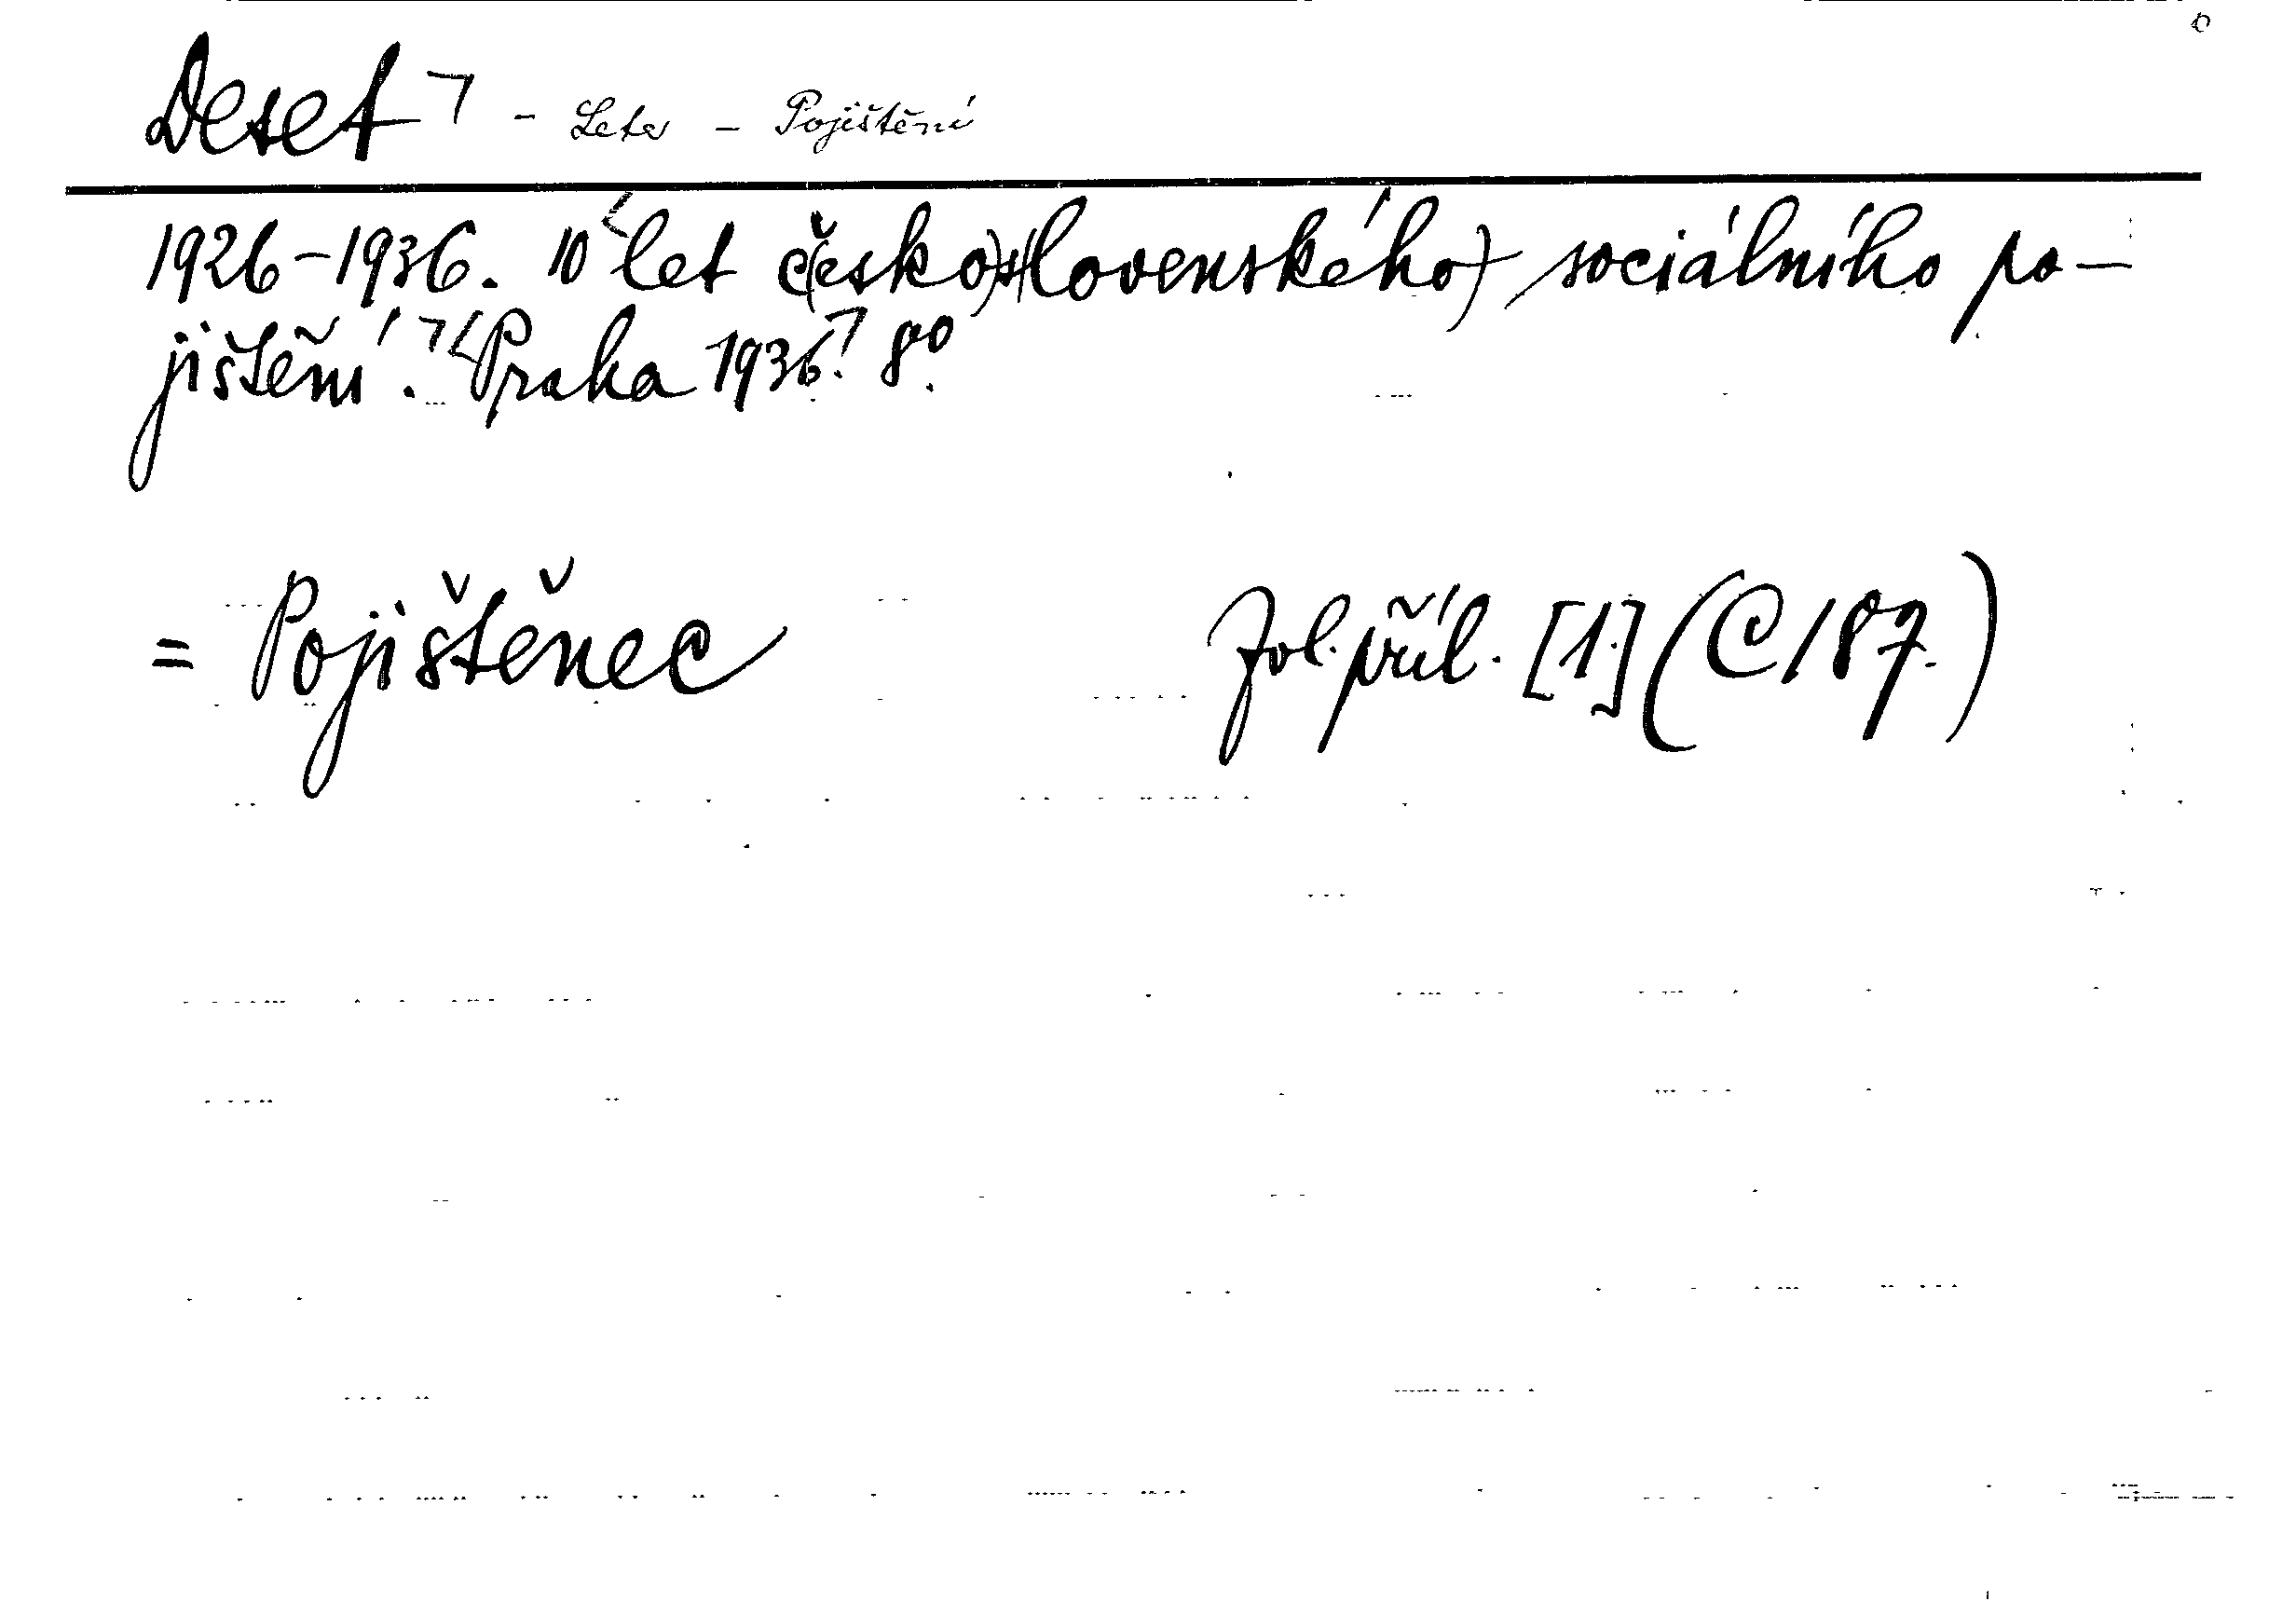 Deset ⌝ - Leta - Pojištění
1926-1936. 10 let č(esko)s(lovenského) sociálního po-
jištění. Praha 1936. 8°.
= Pojištěnec zvl. příl. [1.] (C/87.)